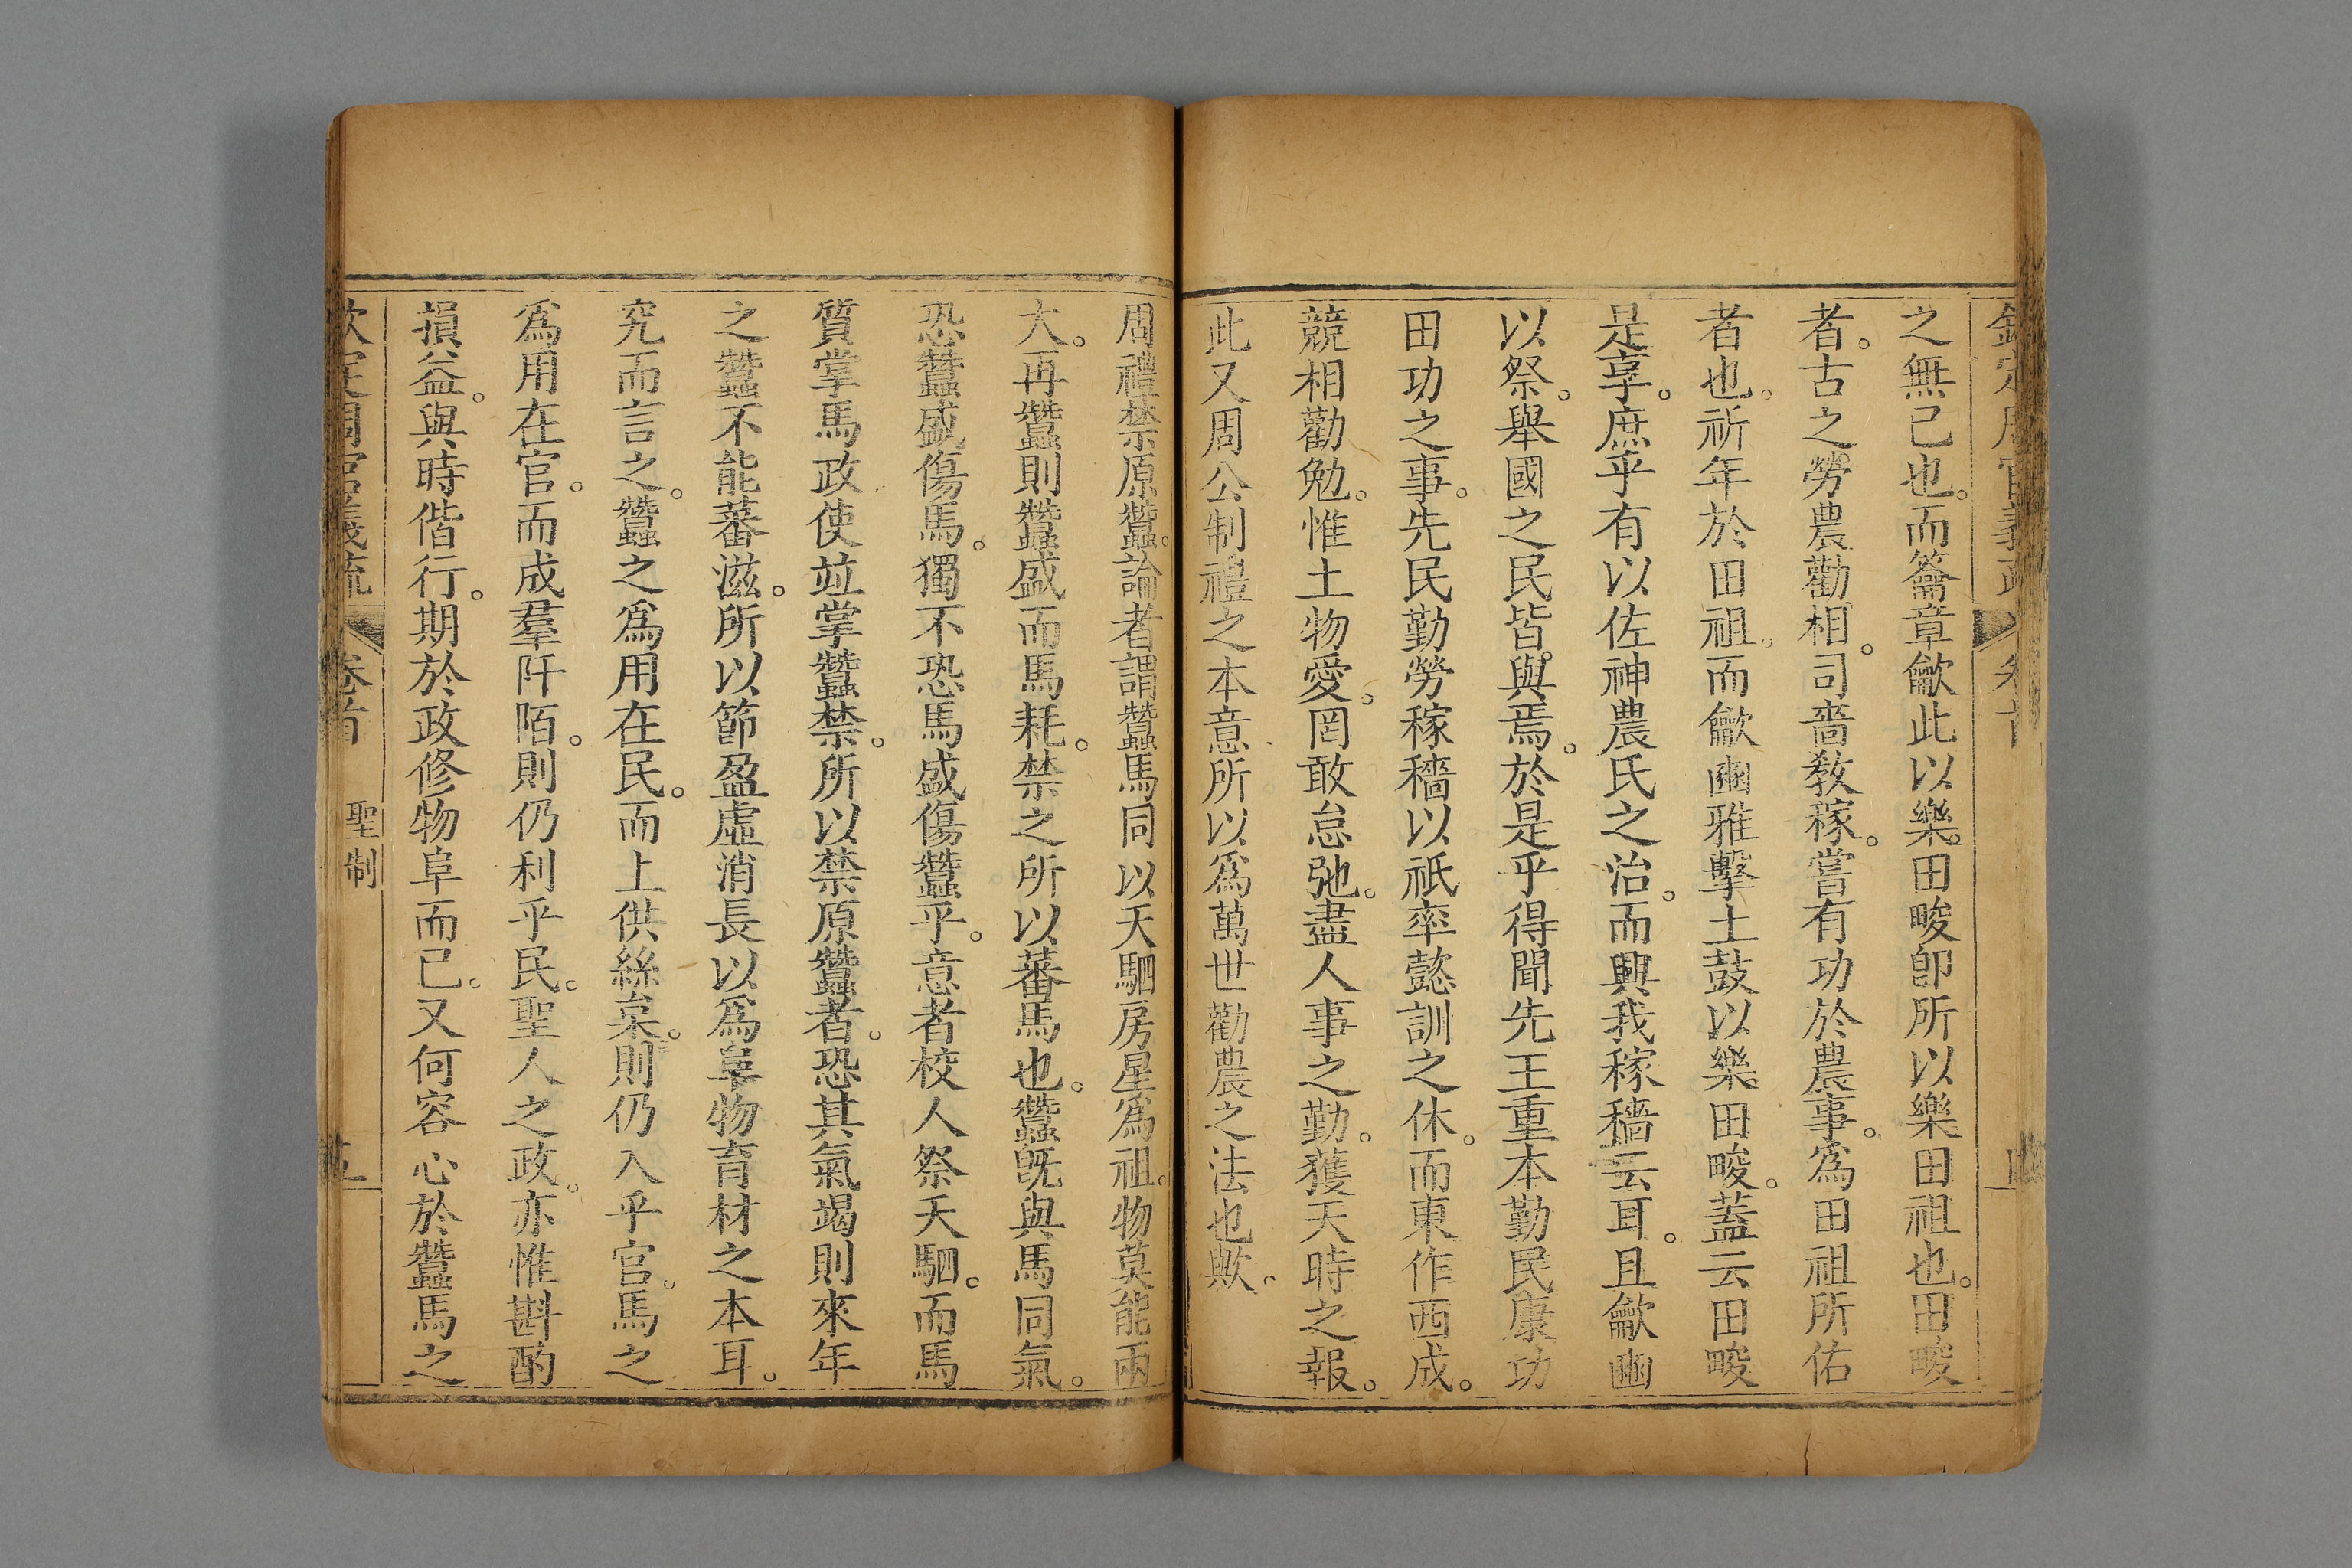 之無已也。而籥章龡此以樂。田畯卽所以樂田祖也。田畯
者。古之勞農勸相。司嗇敎稼。嘗有功於農事。爲田祖所佑
者也。祈年於田祖。而龡豳雅擊土鼓以樂。田畯。蓋云田畯
是享。庶乎有以佐神農氏之治。而興我稼穡云耳。且龡豳
以祭。舉國之民皆。與焉。於是乎得聞先王重本勤民康功
田功之事。先民勤勞稼穡以祇率懿訓之休。而東作西成。
競相勸勉。惟土物愛。罔敢怠弛。盡人事之勤。獲天時之報。
此又周公制禮之本意所以爲萬世勸農之法也歟。
周禮禁原蠶。論者謂蠶馬同以天駟房星爲祖。物莫能兩
大。再蠶則蠶盛而馬耗。禁之所以蕃馬也。蠶旣與馬同氣。
恐蠶盛傷馬。獨不恐馬盛傷蠶乎。意者校人祭天駟。而馬
質掌馬政使竝掌蠶禁。所以禁原蠶者。恐其氣竭則來年
之蠶不能蕃滋。所以節盈虛消長以爲阜物育材之本耳。
究而言之。蠶之爲用在民。而上供絲枲。則仍入乎官。馬之
爲用在官。而成羣阡陌。則仍利乎民。聖人之政。亦惟斟酌
損益。與時偕行。期於政修物阜而已。又何容心於蠶馬之
欽定周官義疏 卷首 聖制